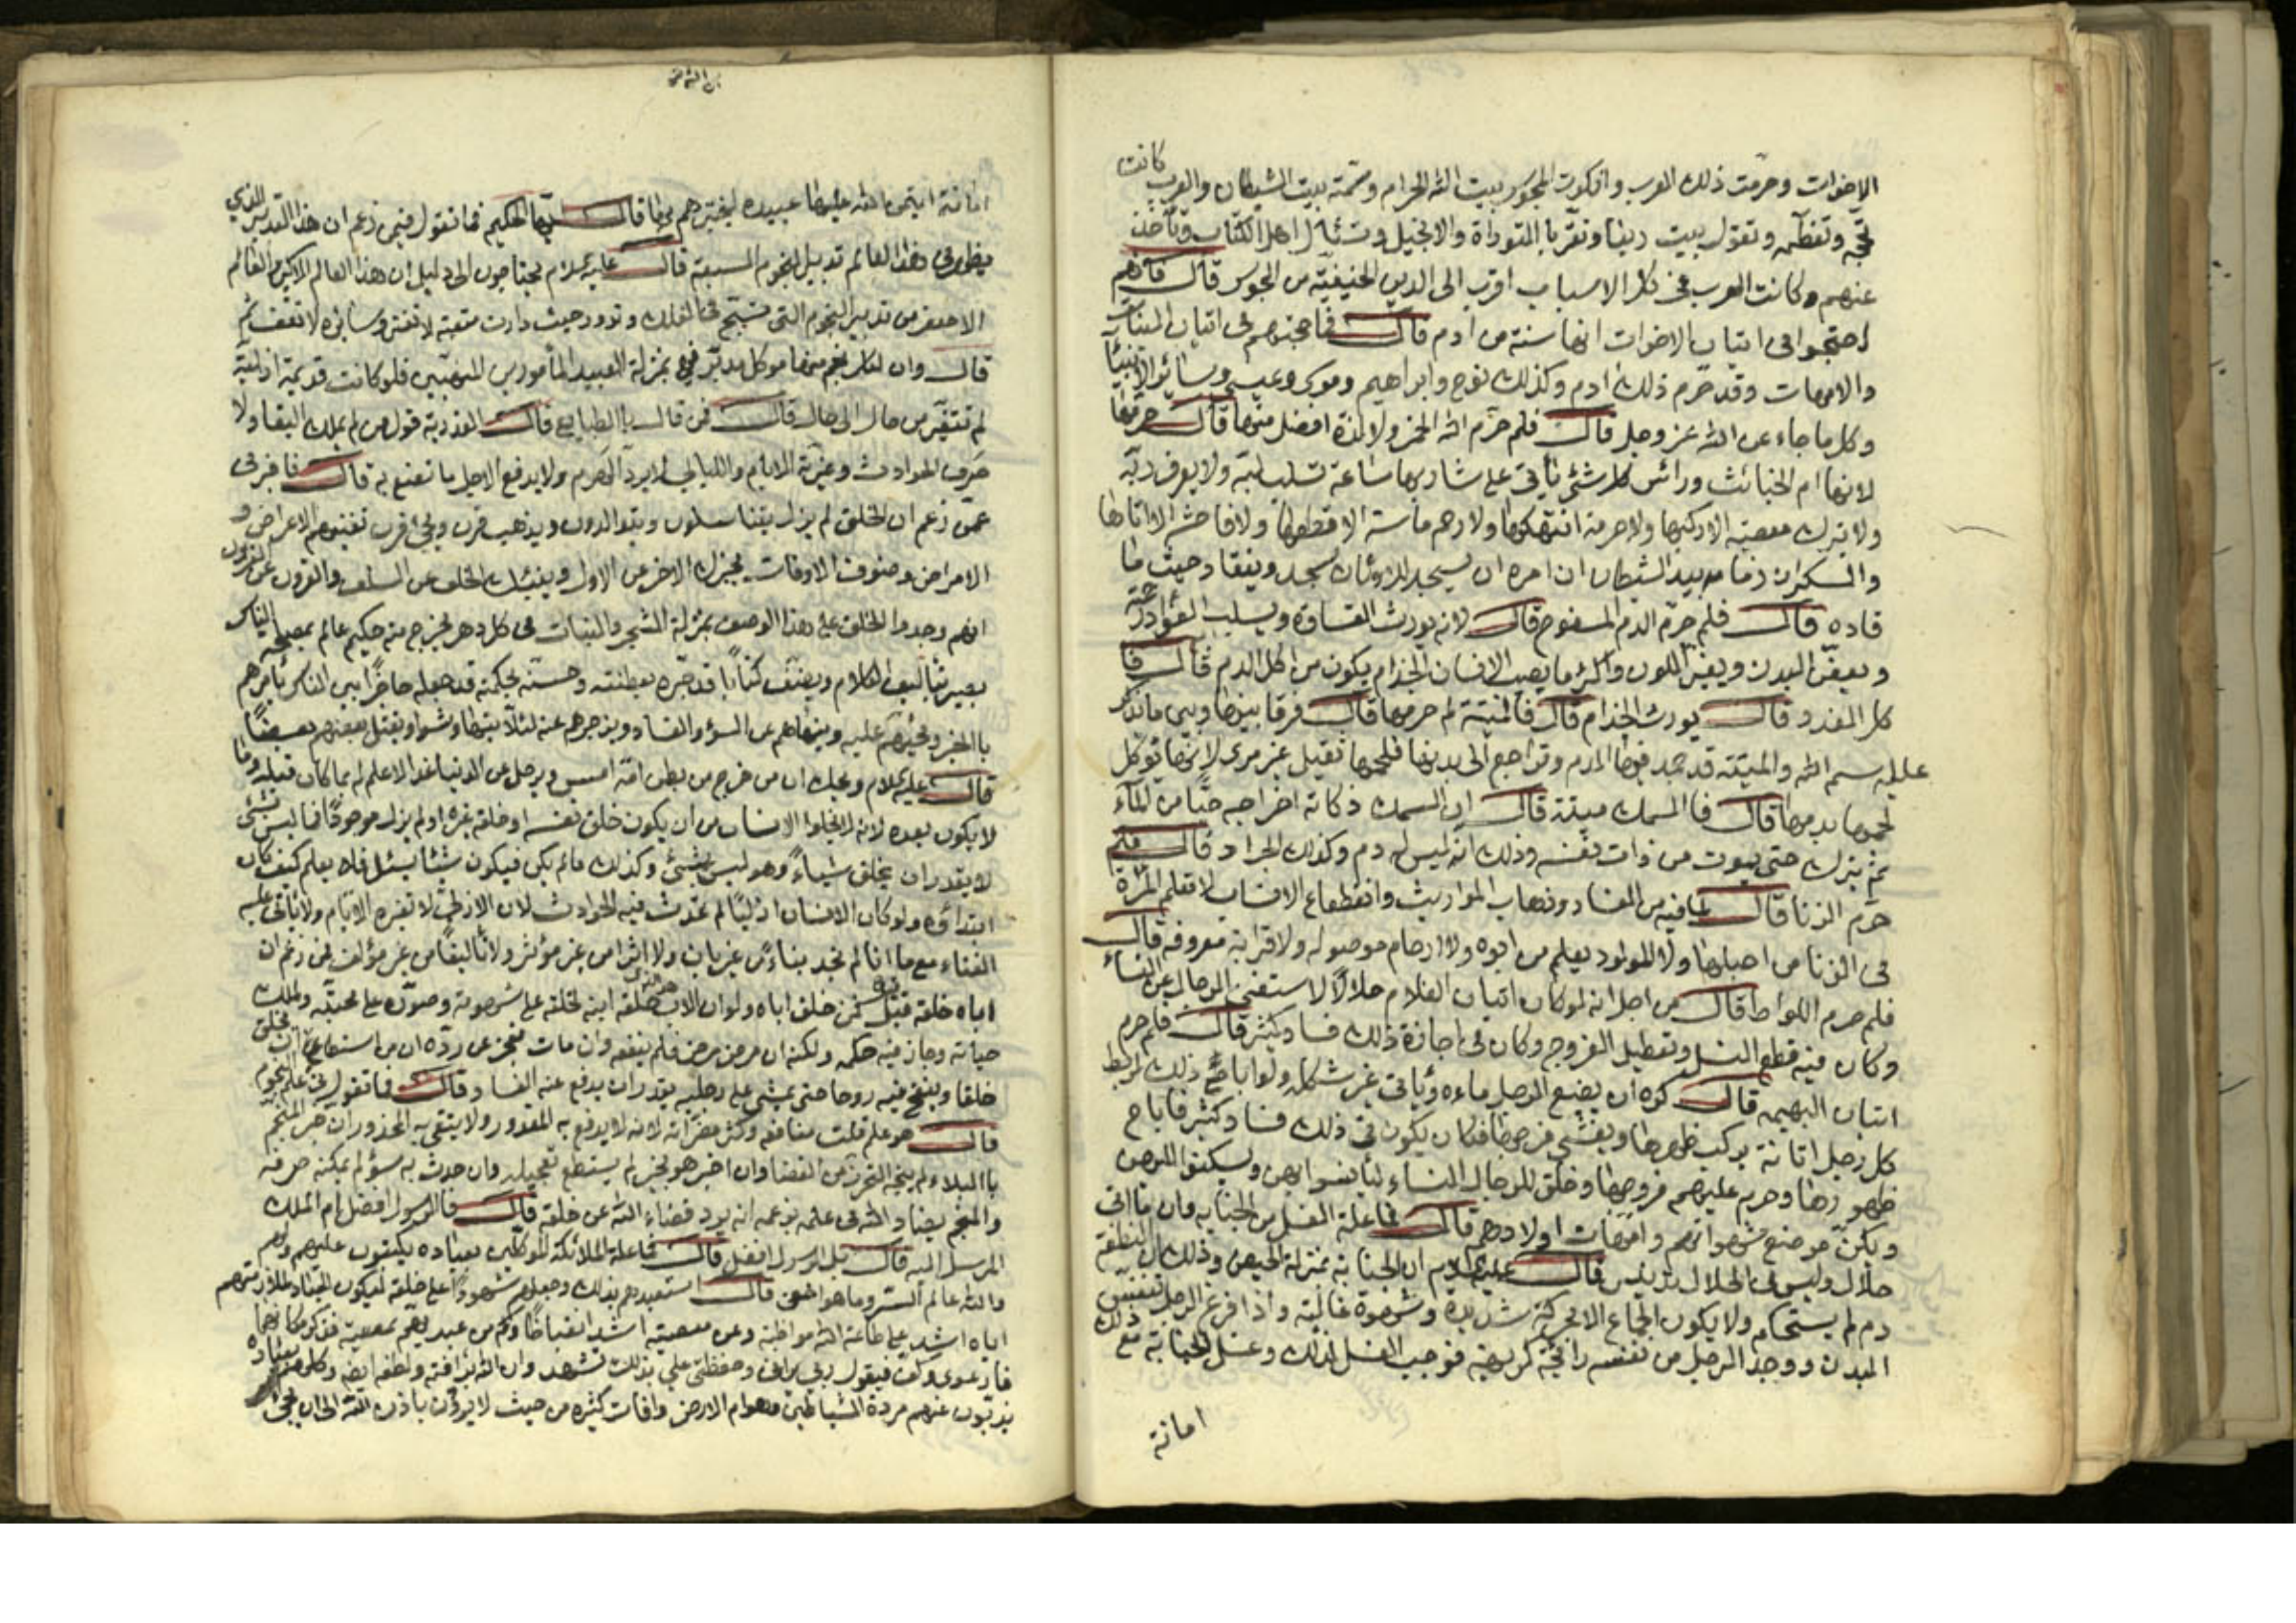 الاخوات وحرمت ذلك العرب وانكرت المجوس بيت الله الحرام وسمته بيت الشيطان والعرب كانت
تحجّه وتعظّمه وتقول بيت ربنا وتقرّ باالتوراة والانجيل وتسئل اهل الكتاب وتأخذ
عنهم وكانت العرب في كل الاسباب اقرب الى الدين الحنيفيّة من المجوس قال فانهم
احتجوا في اتيان الاخوات انها سنة من ادم قال فما حجتهم في اتيان البنات
والامهات وقد حرم ذلك ادم وكذلك نوح وابراهيم وموسى وعيسى وساير الانبيا
وكل ما جاء عن الله عز وجل قال فلم حرّم الله الخمر ولا لذة افضل منها قال حرمها
لانها ام الخبائث ورائس كل شئ يأتي على شاربها ساعة تسلب لبّه ولا يعرف ربّه
ولا يترك معصية الا ركبها ولا حرمة الا انتهكها ولا رحم ماسة الا قطعها ولا فاحشة الا اتاها
والسكران زمامه بيد الشيطان ان امره ان يسجد للاوثان سجد وينقاد حيث ما
قاده قال فلم حرّم الدم المسفوح قال لانه يورث القساوة ويسلب الفؤاد رحمته
ويعفّن البدن ويغيّر اللون واكثر ما يصيب الانسان الجذام يكون من اكل الدم قال فا
كل الغدد قال يورث الجذام قال فالميتة لم حرمها قال فرقا بينها وبين ما يذكر
عليه اسم الله والميتة قد جمد فيها الدم وتراجع الى بدنها فلحمها ثقيل غير مرى لانها توكل
لحمها بدمها قال فاالسمك ميتة قال ان السمك ذكاته اخراجه حيّا من الماء
ثم يترك حتى يموت من ذات نفسه وذلك انه ليس له دم وكذلك الجراد قال فلم
حرّم الزنا قال لما فيه من الفساد وذهاب المواريث وانقطاع الانساب لا تعلم المرأة
في الزنا من احبلها ولا المولود يعلم من ابوه ولا ارحام موصولة ولا قرابة معروفة قال
فلم حرم اللواط قال من اجل انه لو كان اتيان الغلام حلالا لاستغنى الرجال عن النساء
وكان فيه قطع النسل وتعطيل الفروج وكان في اجازة ذلك فساد كثير قال فلم حرم
اتيان البهيمة قال كره ان يضيع الرجل ماءه ويأتي غير شكله ولو اباح ذلك لربط
كل رجل اتانة يركب ظهرها ويغشى فرجها فكان يكون في ذلك فساد كثير فاباح
ظهورها وحرم عليهم فروجها وخلق للرجال النساء ليأنسوا بهن ويسكنوا اليهن
ويكنّ موضع شهواتهم وامهات اولادهم قال فما علة الغسل من الجنابة وان ما اتى
حلال وليس في الحلال تدنيس قال عليه السلام ان الجنابة بمنزلة الحيض وذلك ان النطفة
دم لم يستحكم ولا يكون الجماع الا بحركة شديدة وشهوة غالبة واذا فرغ الرجل تنفس
البدن ووجد الرجل من نفسه رائحة كريهة فوجب الغسل لذلك وغسل الجنابة مع ذلك
امانة
امانة ايتمن الله عليها عبيده ليختبرهم بها قال ايها الحكيم فما تقول فيمن زعم ان هذا التدبير الذي
يظهر في هذا العالم تدبير النجوم السبعة قال عليه السلام يحتاجون الى دليل ان هذا العالم الاكبر والعالم
الاصغر من تدبير النجوم التي تسبّح في الفلك وتدور حيث دارت متعبة لا تفتر وسائرة لا تقف ثم
قال وان لكل نجم منها موكل مدبّر فهي بمنزلة العبيد المأمورين المنهيّين فلو كانت قديمة ازليّة
لم تتغيّر من حال الى حال قال فمن قال باالطبايع قال القدرية قول من لم يملك البقا ولا
صرف الحوادث وغيّرته الايام والليالي لا يرد الهرم ولا يدفع الاجل ما تصنع به قال فاخبرني
عمّن زعم ان الخلق لم يزل يتناسلون ويتوالدون ويذهب قرن ويجئ قرن تفنيهم الامراض و
الاعراض وصنوف الافات يخبرك الاخر عن الاول وينبئك الخلف عن السلف والقرون عن القرون
انهم وجدوا الخلق على هذا الوصف بمنزلة الشجر والنبات في كل دهر يخرج منه حكيم عالم بمصلحة الناس
بصير بتأليف الكلام ويصنّف كتابًا قد حبّره بفطنته وحسّنه بحكمته قد جعله حاجزًا بين الناس يأمرهم
باالخير ويحثهم عليه وينهاهم عن السوء والفساد ويزجرهم عنه لئلا يتهاوشوا ويقتل بعضهم بعضًا
قال عليه السلام ويحك ان من خرج من بطن امه امس ويرحل عن الدنيا غدا لا علم له بما كان قبله وما
لا يكون بعده لانه لا يخلوا الانسان من ان يكون خلق نفسه او خلقه غيره او لم يزل موجودًا فما ليس بشئ
لا يقدر ان يخلق شياءً وهو ليس بشئ وكذلك ما لم يكن فيكون شيئا يسئل فلا يعلم كيف كان
ابتداؤه ولو كان الانسان ازليّا لم تحدث فيه الحوادث لان الازلي لا تغيره الايام ولا يأتي عليه
الفناء مع ما انا لم نجد بناءً من غير بان ولا اثرا من غير مؤثر ولا تأليفا من غير مؤلف فمن زعم ان
اباه خلقه قيل فمن خلق اباه ولو ان الاب هو الذي خلقه ابنه لخلقه على شهوته وصوّره على محبته ولملك
حياته وجاز فيه حكمه ولكنه ان مرض مرض فلم ينفعه وان مات فعجز عن ردّه ان من استطاع ان يخلق
خلقا وينفخ فيه روحا حتى يمشي على رجليه يقدر ان يدفع عنه الفساد قال فما تقول في علم النجوم
قال هو علم قلت منافعه وكثر مضرّاته لانه لا يدفع به المقدور ولا يتقى به المحذور ان خبر المنجّم
باالبلاء لم ينجه التحرّز من القضا وان اخبر هو بخير لم يستطع تعجيله وان حدث به سؤ لم يمكنه صرفه
والمنجم يضاد الله في علمه بزعمه انه يرد قضاء الله عن خلقه قال فالرسول افضل ام الملك
المرسل اليه قال بل الرسول افضل قال فما علة الملائكة الموكلين بعباده يكتبون عليهم ولهم
والله عالم السرّ وما هو اخفى قال استعبدهم بذلك وجعلهم شهودًا على خلقه ليكون العباد لملازمتهم
اياه اشد على طاعة الله مواظبة وعن معصيته اشد انقباضًا وكم من عبد يهمّ بمعصية فذكر مكانهما
فارعوى وكف فيقول ربي يراني وحفظتي علي بذلك تشهد وان الله برافته ولطفه ايضا وكلهم بعباده
يذبّون عنهم مردة الشياطين وهوام الارض وافات كثيره من حيث لا يرون باذن الله الى ان يجئ